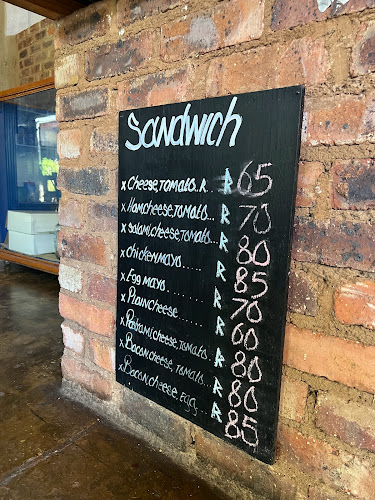 Sandwich
x Cheese,Tomato.R... R 65
x Ham,cheese,Tomato... R 70
x Salami,cheese,Tomato... R 80
x chicken mayo..... R 85
x Egg mayo....... R 70
x Plain cheese....... R 60
x Pastrami,cheese,Tomato. R 80
x Bacon cheese, Tomato... R 80
x Bacon cheese, Egg... R 85